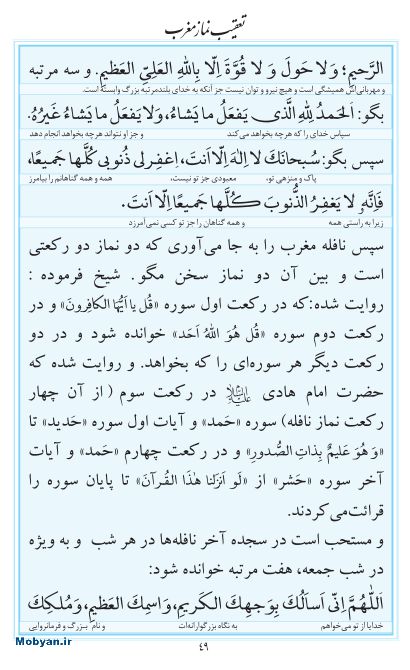 تعقیب نماز مغرب
الرَّحیمِ؛ وَلا حَولَ وَ لا قُوَّةَ اِلّا بِاللهِ العَلِیِّ العَظیمِ. و سه مرتبه
و مهربانی‌اش همیشگی است و هیچ نیرو و توان نیست جز آنکه به خدای بلندمرتبه بزرگ وابسته است.
بگو: اَلحَمدُ لِلّهِ الَّذی یَفعَلُ ما یَشاءُ، وَلا یَفعَلُ ما یَشاءُ غَیرُهُ.
سپاس خدای را که هرچه بخواهد می‌کند و جز او نتواند هرچه بخواهد انجام دهد
سپس بگو: سُبحانَكَ لا اِلهَ اِلّا اَنتَ، اِغفِر لی ذُنوبی كُلَّها جَمیعًا،
پاک و منزهی تو، معبودی جز تو نیست، همه و همه گناهانم را بیامرز
فَاِنَّهُ لا یَغفِرُ الذُّنوبَ كُلَّها جَمیعًا اِلّا اَنتَ.
زیرا به راستی همه و همه گناهان را جز تو کسی نمی‌آمرزد
سپس نافله مغرب را به جا می‌آوری که دو نماز دو رکعتی
است و بین آن دو نماز سخن مگو. شیخ فرموده :
روایت شده:که در رکعت اول سوره «قُل یا اَیُّهَا الکافِرونَ» و در
رکعت دوم سوره «قُل هُوَ اللهُ اَحَد» خوانده شود و در دو
رکعت دیگر هر سوره‌ای را که بخواهد. و روایت شده که
حضرت امام هادی علیه‌السلام در رکعت سوم (از آن چهار
رکعت نماز نافله) سوره «حَمد» و آیات اول سوره «حَدید» تا
«وَ هُوَ عَلیمٌ بِذاتِ الصُّدورِ» و در رکعت چهارم «حَمد» و آیات
آخر سوره «حَشر» از «لَو اَنزَلنا هٰذَا القُرآنَ» تا پایان سوره را
قرائت‌می‌کردند.
و مستحب است در سجده آخر نافله‌ها در هر شب و به ویژه
در شب جمعه، هفت مرتبه خوانده شود:
اَللّهُمَّ اِنّی اَسأَلُكَ بِوَجهِكَ الكَریمِ، وَاسمِكَ العَظیمِ، وَ مُلكِكَ
خدایا از تو می‌خواهم به نگاه بزرگوارانه‌ات و نام بزرگ و فرمانروایی
۴۹
Mobyan.ir